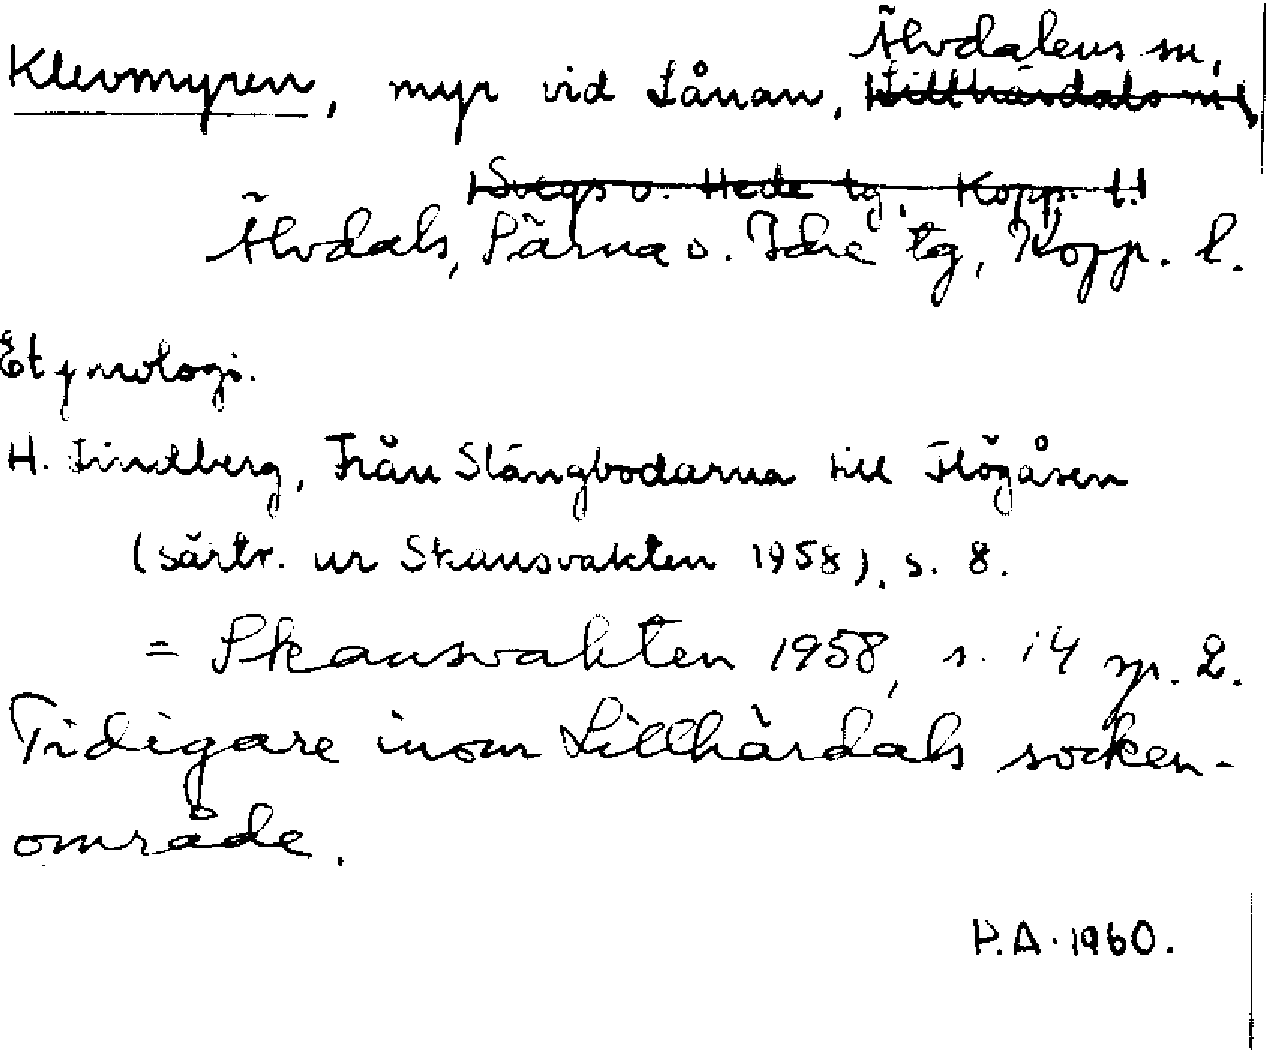 Älvdalens sn,
Klevmyren, myr vid Lånan, Lillhärdals sn,
Svegs o. Hede tg, Kopp. l.
Älvdals, Särna o. Idre tg, Kopp. l.
Etymologi.
H. Lindberg, Från Slängbodarna till Flögåsen
(särtr. ur Skansvakten 1958), s. 8.
= Skansvakten 1958, s. 14 sp. 2.
Tidigare inom Lillhärdals socken-
område.
P.A. 1960.